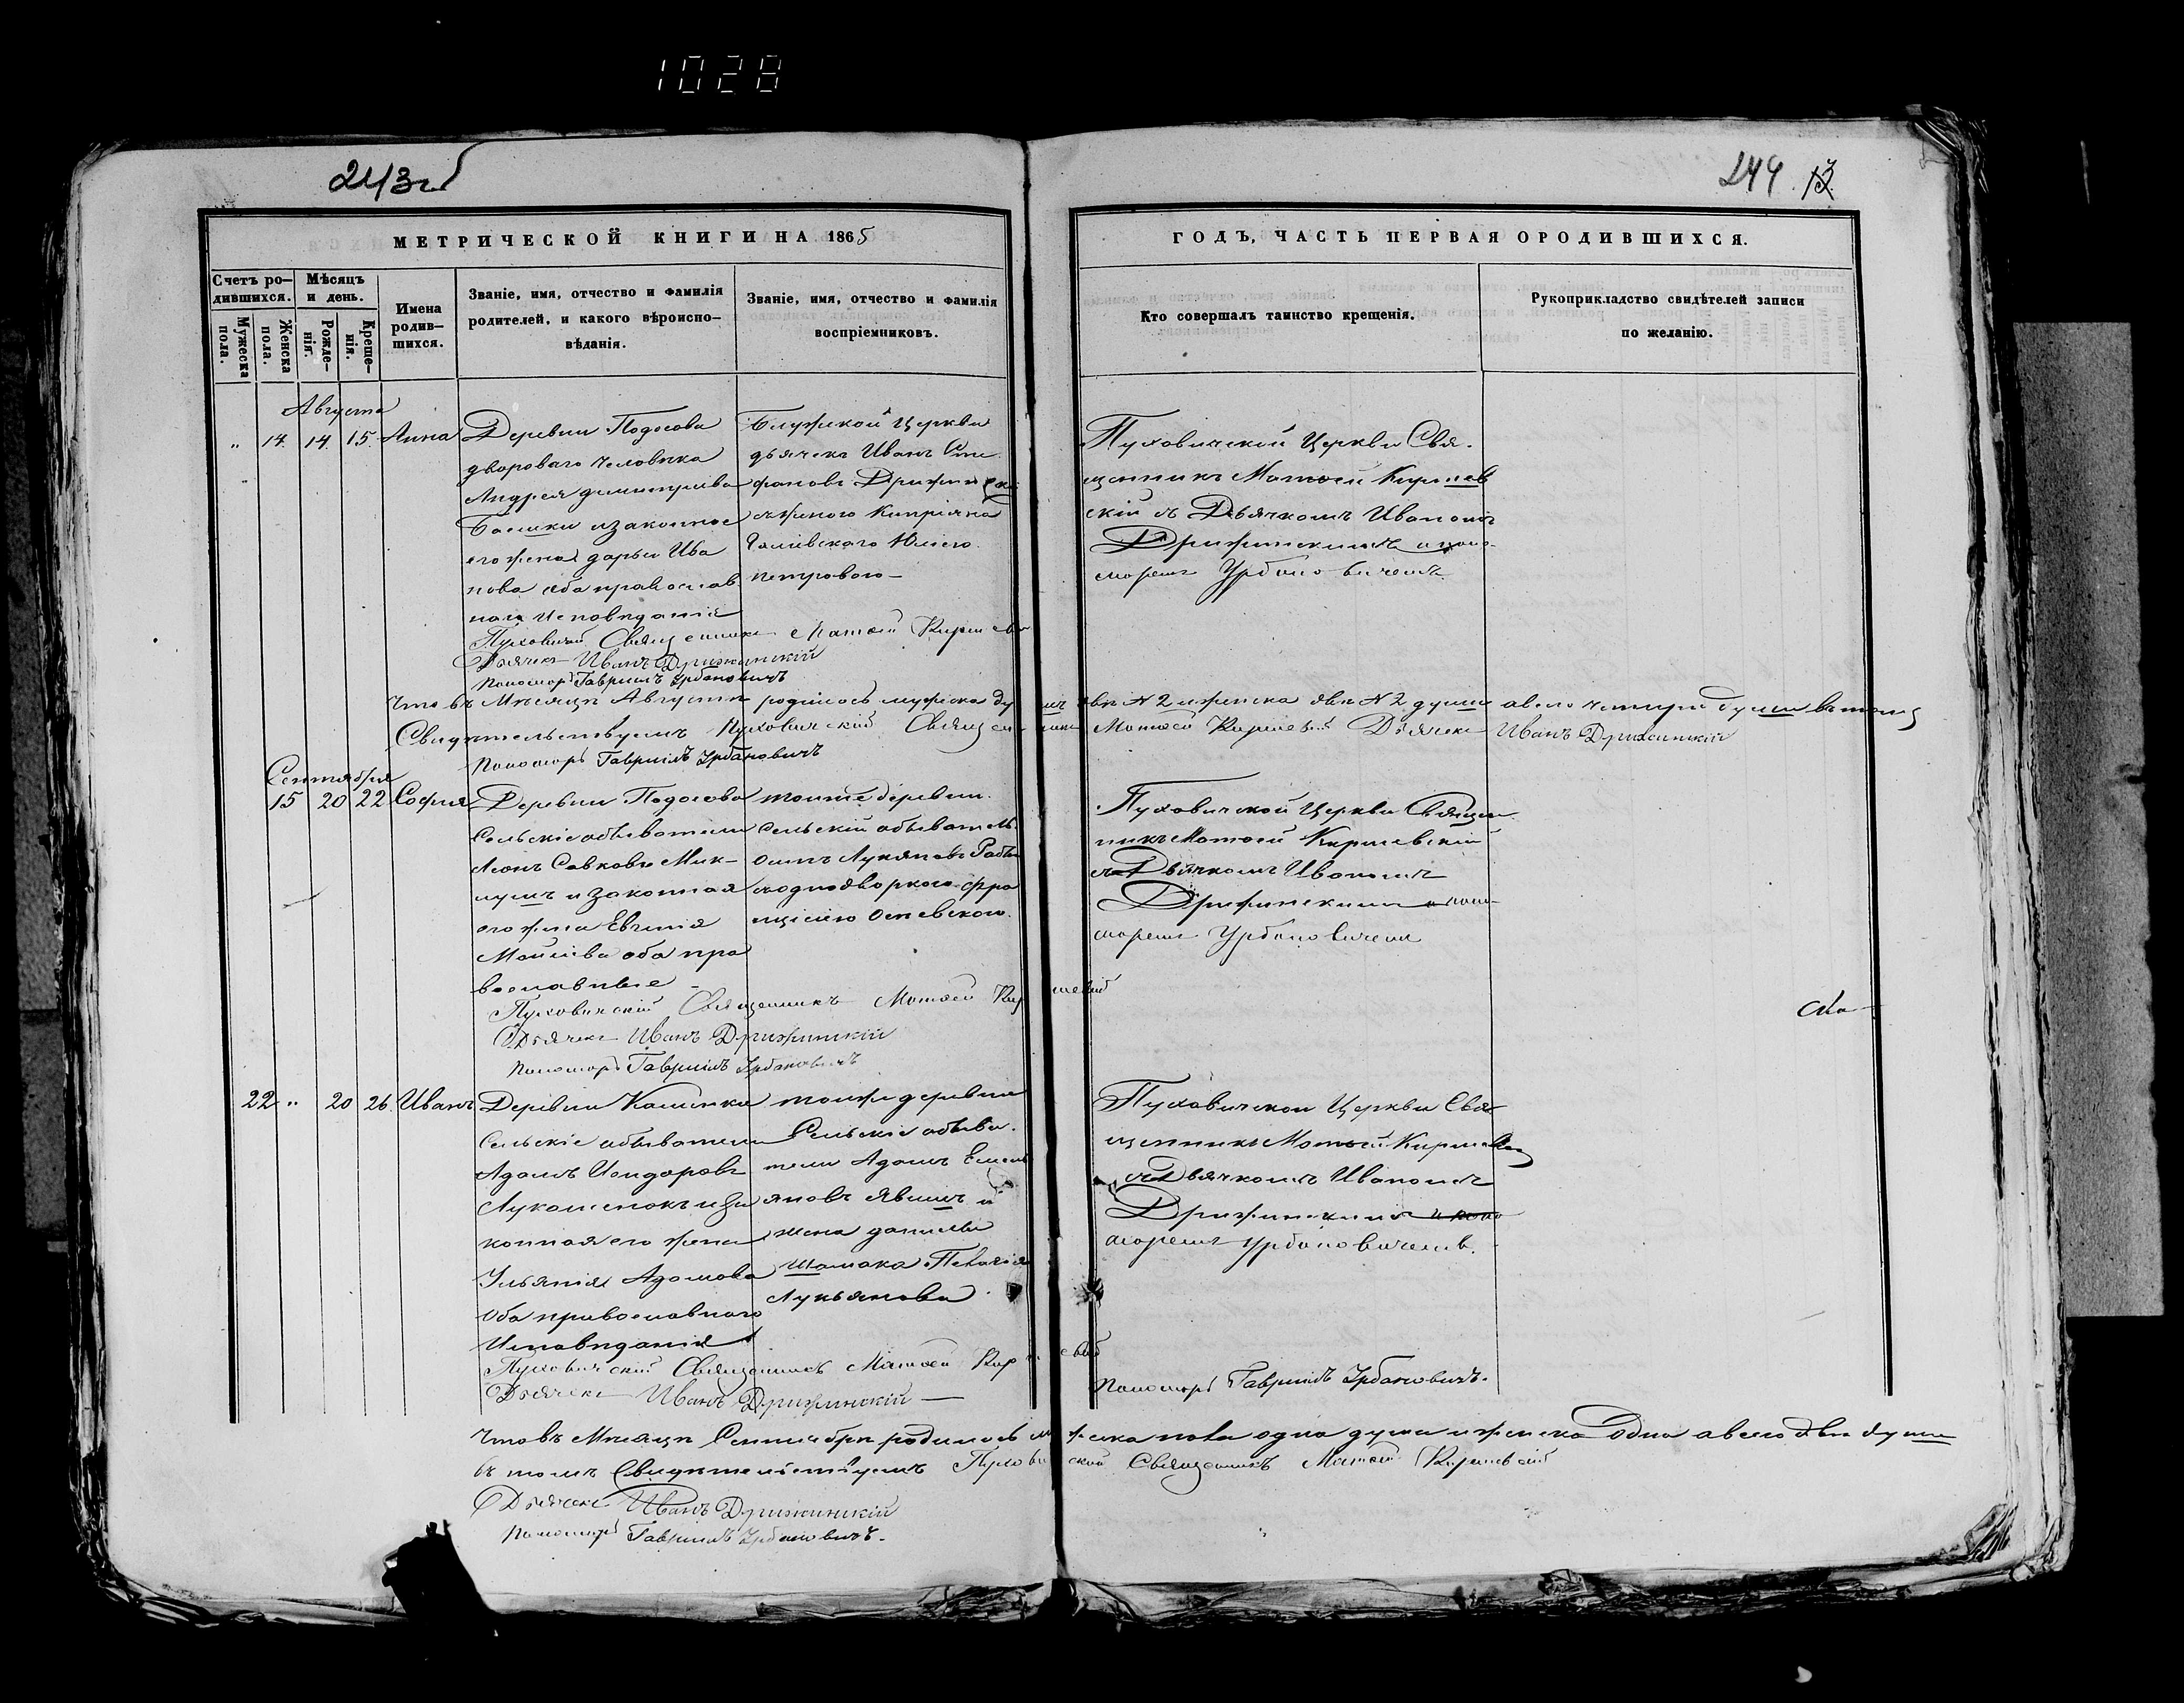 1028
243об
244 13
МЕТРИЧЕСКОЙ КНИГИ НА 1865
ГОДЪ, ЧАСТЬ ПЕРВАЯ О РОДИВШИХСЯ.
Счетъ ро-
дившихся.
Мужеска
пола.
Женска
пола.
Мѣсяцъ
и день.
Рожде-
нія.
Креще-
нія.
Имена
родив-
шихся.
Званіе, имя, отчество и фамилія
родителей, и какого вѣроиспо-
вѣданія.
Званіе, имя, отчество и фамилія
воспріемниковъ.
Кто совершалъ таинство крещенія.
Рукоприкладство свидѣтелей записи
по желанію.
Августа
" 14. 14. 15. Анна
Деревни Подосова
двороваго человѣка
Андрея димитриева
и законное
его жена дарьи Ива
нова оба православ
наго исповѣданія
Блужской Церкви
дьячекъ Иванъ Сте
фановъ
Кипріяна
петровою
Пуховичской Церкви Свя.
щенникъ Матѳей Киркев
скій съ Дьячкомъ Иваномъ
Дрижинскимъ и поно
маремъ Урбановичемъ
Пуховичскій Священникъ Матѳей
Дьячекъ Иванъ Дрижинскій
Пономарь Гавріилъ Урбановичъ
Что въ Мѣсяцѣ Августѣ родилось мужска душъ двѣ №2 и женска двѣ №2 души а всего четыре души въ томъ
Свидѣтельствуемъ Пуховичскій Священникъ Матѳей Дьячекъ Иванъ Дрижинскій
Пономарь Гавріилъ Урбановичъ
Сентября
15 20 22 Софія
Деревни Подосова
Сельскіе обыватели
Леонъ Савковъ Мик-
и законная
его жена Евгенія
оба пра
вославные
тоиже деревни.
Сельскій обыватель
Осипъ Лукяновъ
съ однодворкою Фра
нцішкою
Пуховичской Церкви Священ
никъ Матѳей
съ Дьячкомъ Иваномъ
Дрижинскимъ и поно
маремъ Урбановичемъ
Пуховичскій Священникъ Матѳей
Дьячекъ Иванъ Дрижинскій
Пономарь Гавріилъ Урбановичъ
22 " 20 26 Иванъ
Деревни Калинки
Сельскіе обыватели
Адамъ Исидоровъ
Лукашенокъ и За
конная его жена
Ульянія Адамова
Оба православнаго
Исповѣданія
тоиже деревни
Сельскіе обыва.
тели Адамъ Емель
яновъ и
жена данилы
Шамака Пелагія
Лукьянова
Пуховичской Церкви Свя
щенникъ Матѳей
съ Дьячкомъ Иваномъ
Дрижинскимъ и поно
маремъ Урбановичемъ.
Пуховичскій Священникъ Матѳей
Дьячекъ Иванъ Дрижинскій
Пономарь Гавріилъ Урбановичъ.
Что въ Мѣсяцѣ Сентябрѣ родилось мужска пола одна душа и женска Одна а всего двѣ души
въ томъ Свидѣтельствуемъ Пуховичской Священникъ Матѳей
Дьячекъ Иванъ Дрижинскій
Пономарь Гавріилъ Урбановичъ.